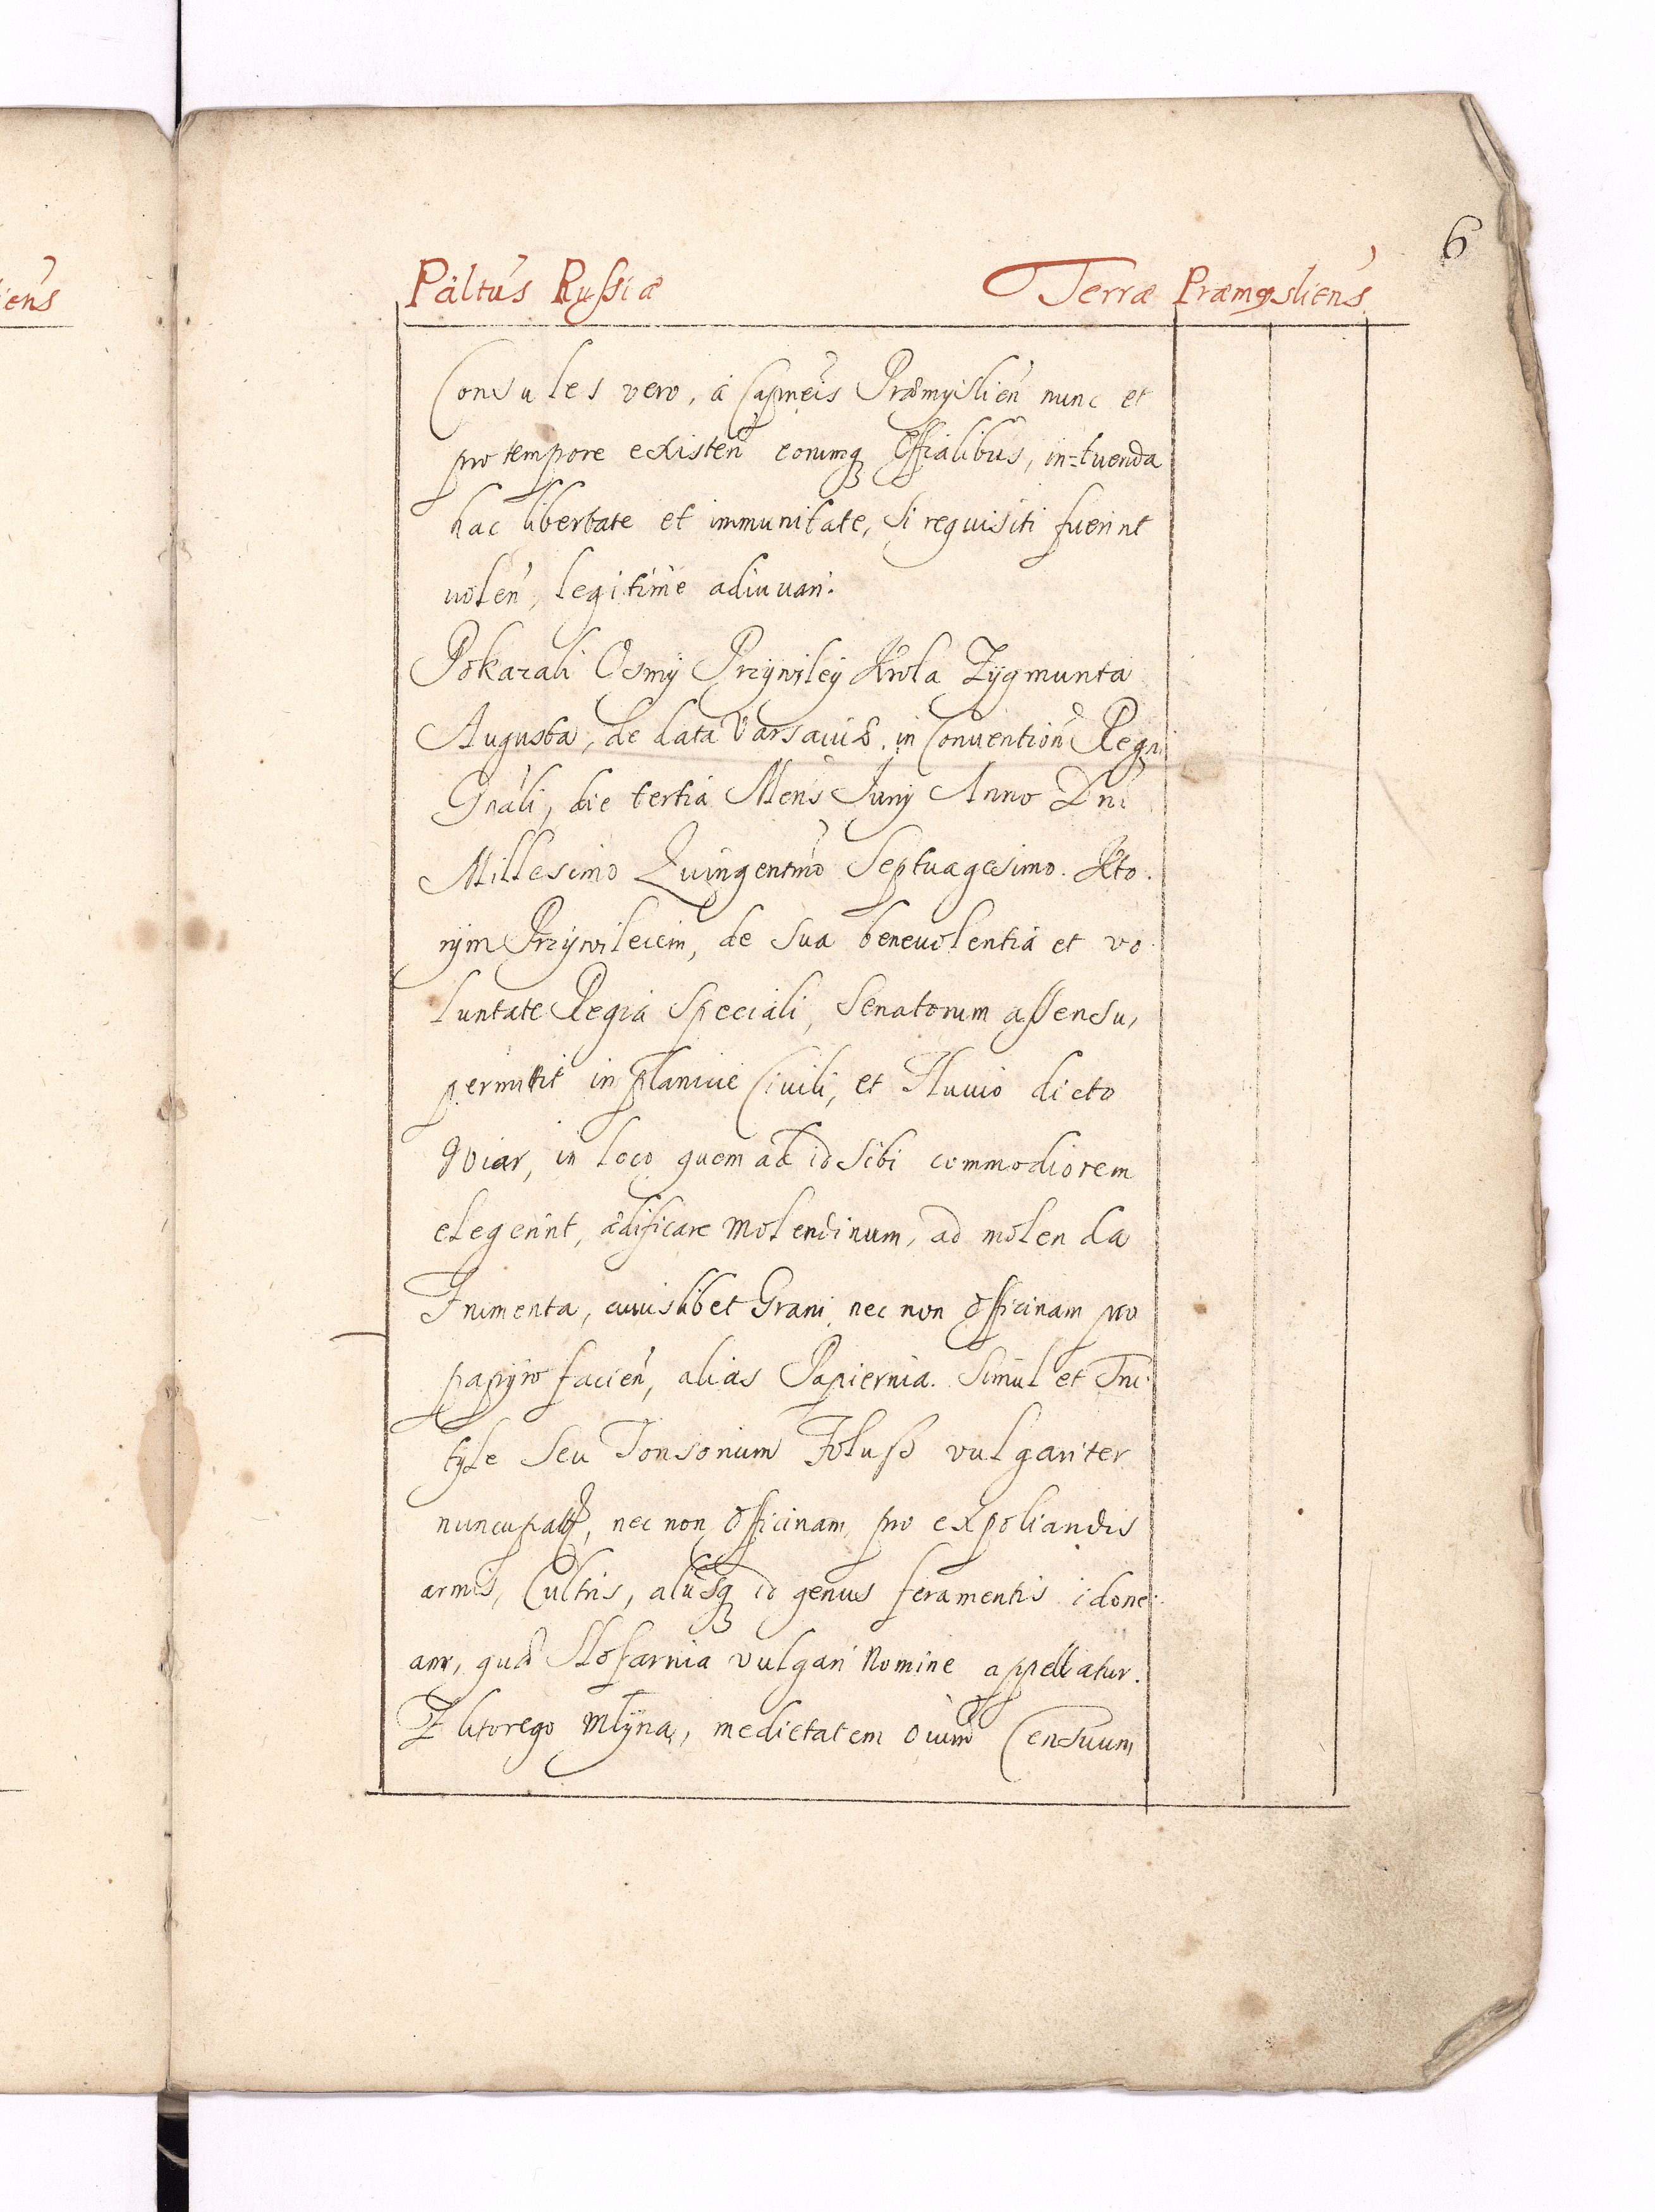 6
iens
Păltus Russiæ Terræ Præmysliens
Consules vero, á Capneis Præmyslien nunc et
pro tempore existen eorumq Offialibus, in-tuenda
hac libertate et immunitate, si requisiti fuerint
uolen, legitime adiuuari.
Pokazali Osmÿ Przÿwileÿ Krola Zÿgmunta
Augusta, de data Varsauiæ in Conuention Regni
Gnali, die tertia Mens Junÿ Anno Dni
Millesimo Quingentmo Septuagesimo. Kto.
rÿm Przÿwileiem, de sua beneuolentiá et vo
luntate Regiá Speciali, Senatorum assensu,
permittit in planicie Ciuili, et Fluuio dicto
Wiar, in loco quem ad id sibi commodiorem
elegerint, ædificare Molendinum, ad molenda
Frumenta, cuiuslibet Grani, nec non Officinam pro
papÿro facien, alias Papiernia. Simul et Tri
tÿle seu Tonsorium Folusz vulgariter
nuncupat, nec non Officinam, pro expoliandis
armis, Cultris, aliisq id genus feramentis idone
am, quæ Slofarnia vulgari Nomine appellatur.
Z ktorego Młÿna, medietatem oium Censuum